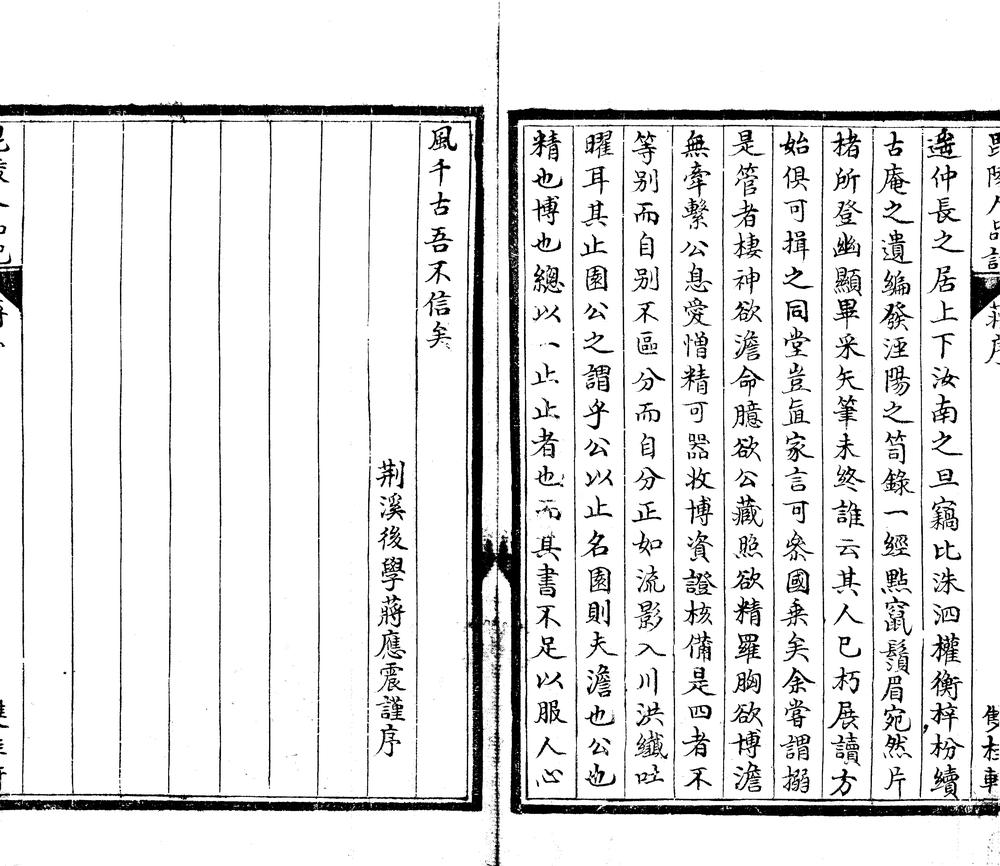 毘陵人品記 蔣序 雙桂軒
遥仲長之居上下汝南之旦竊比洙泗權衡梓枌續
古庵之遺編發涇陽之笥錄一經點竄鬚眉宛然片
楮所登幽顯畢采矢筆未終誰云其人已朽展讀方
始俱可揖之同堂豈直家言可叅國乗矣余嘗謂搦
是管者棲神欲澹命臆欲公藏照欲精羅胸欲博澹
無牽繫公息愛憎精可器收博資證核備是四者不
等别而自别不區分而自分正如流影入川洪纖吐
曜耳其止園公之謂乎公以止名園則夫澹也公也
精也博也總以一止止者也而其書不足以服人心
風千古吾不信矣
荆溪後學蔣應震謹序